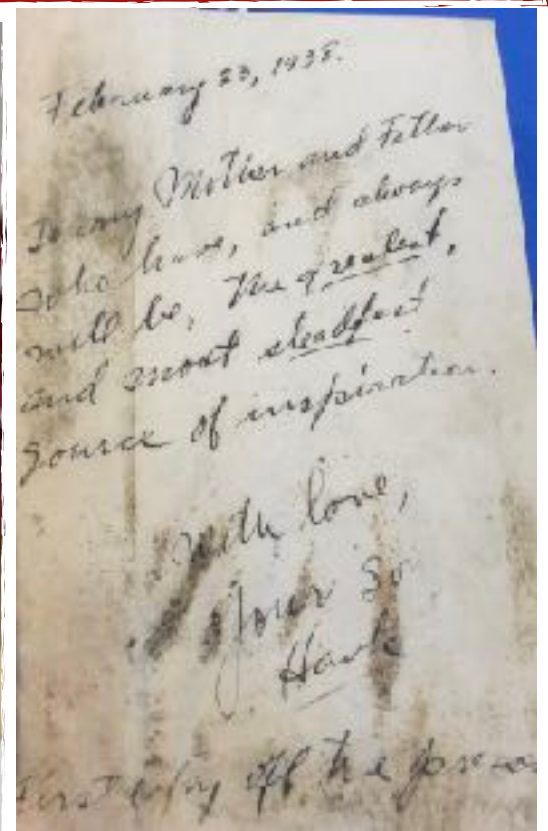 February 23, 1938.
To my Mother and Father
who have, and always
will be, the greatest,
and most steadfast
source of inspiration.
With love,
Your so
Hawk
First copy off the press